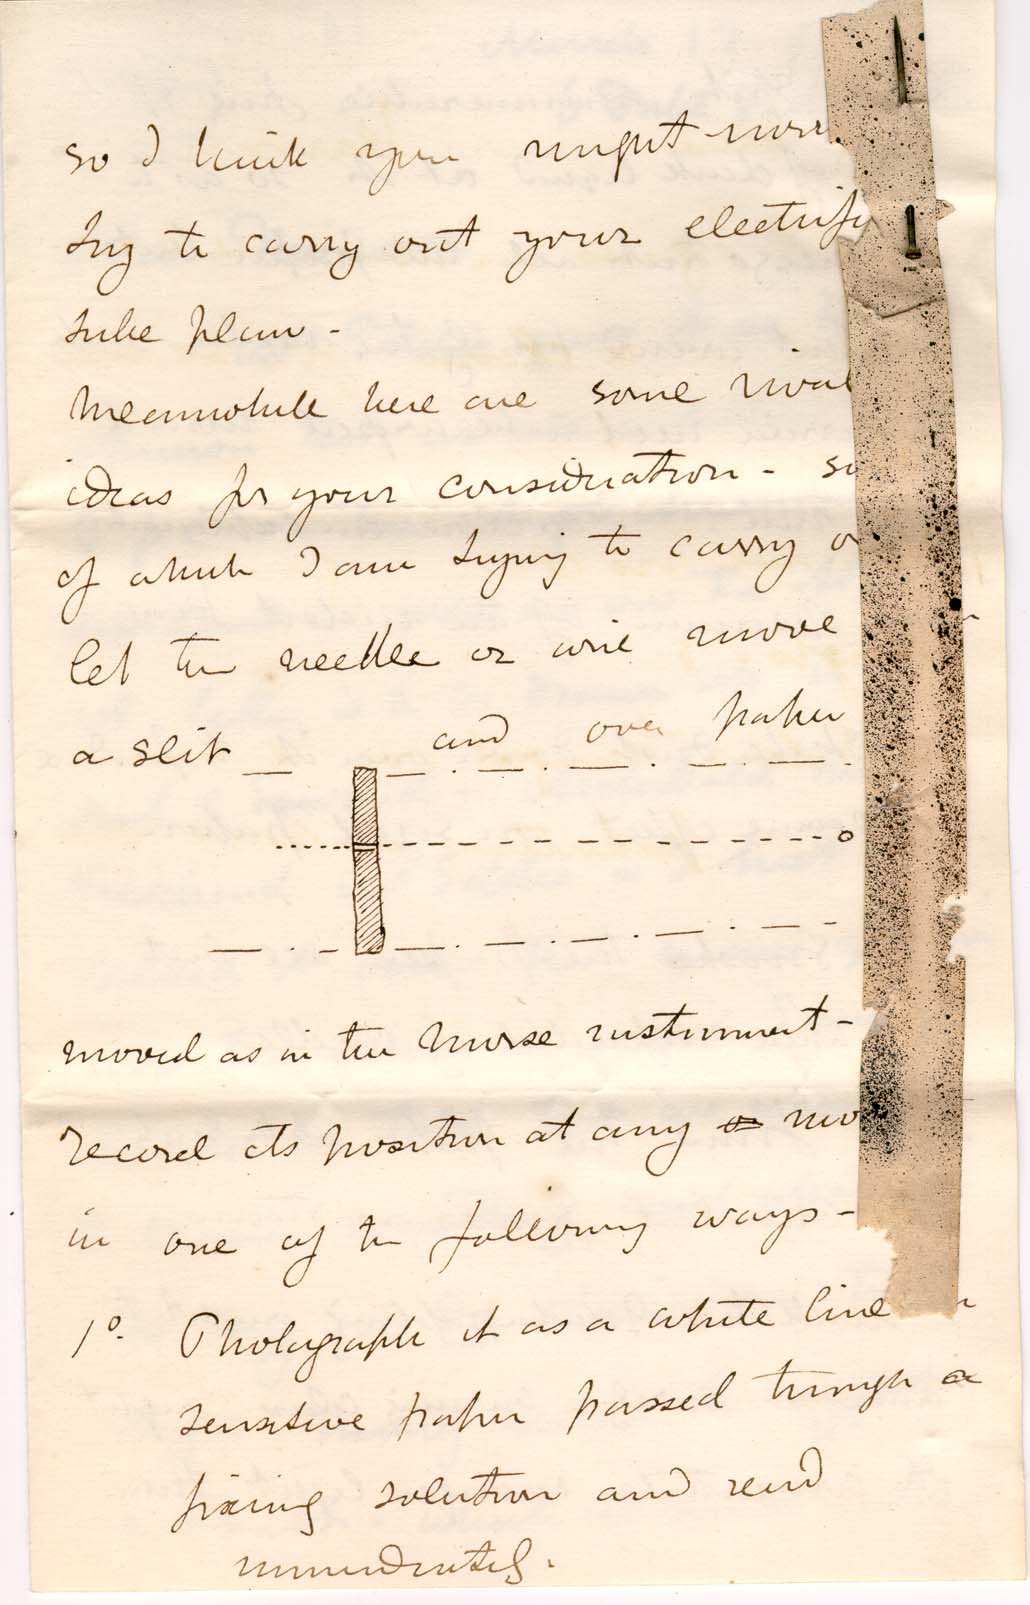 so I think you might now
try to carry out your electrify
tube plan -
Meanwhile here are some rival
ideas for your consideration - so
of which I am trying to carry o
let the needle or wire move
a slit and over paper
moved as in the Morse instrument -
record its position at any mo
in one of the following ways -
1º. Photograph it as a white line
sensitive paper passed through a
fixing solution and read
immediately.